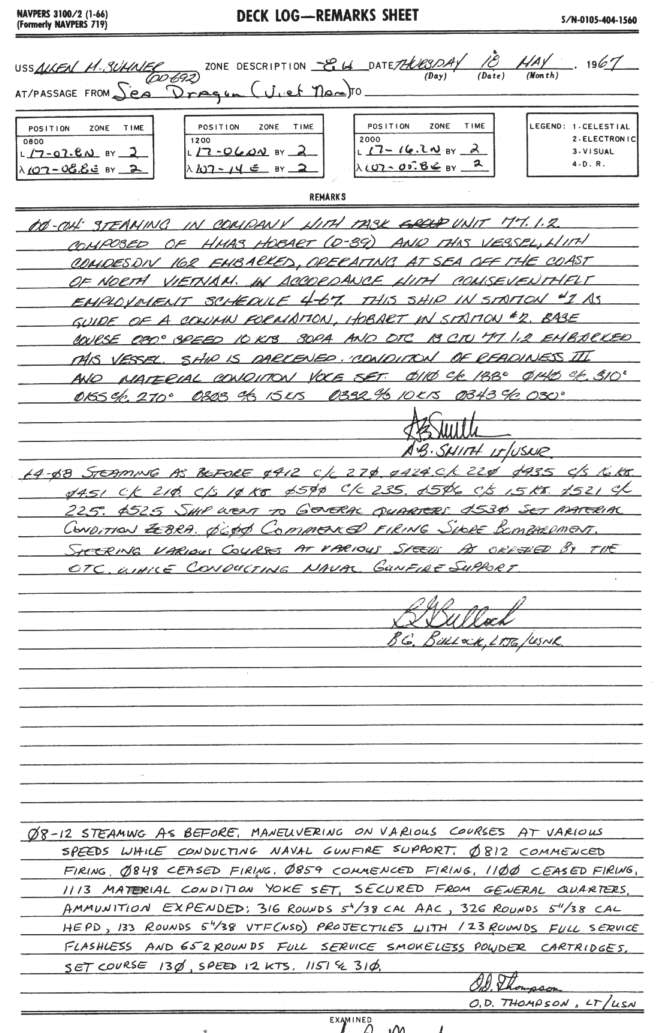 NAVPERS 3100/2 (1-66)
(Formerly NAVPERS 719)
DECK LOG—REMARKS SHEET
S/N-0105-404-1560
USS ALLEN M. SUMNER (DD-692) ZONE DESCRIPTION -8 H DATE THURSDAY 18 MAY, 1967
(Day) (Date) (Month)
AT/PASSAGE FROM Sea Dragon (Viet Nam) TO
POSITION ZONE TIME
0800
L 17-07.8N BY 2
λ 107-08.8E BY 2
POSITION ZONE TIME
1200
L 17-06.0N BY 2
λ 107-14 E BY 2
POSITION ZONE TIME
2000
L 17-16.2N BY 2
λ 107-05.8E BY 2
LEGEND: 1-CELESTIAL
2-ELECTRONIC
3-VISUAL
4-D. R.
REMARKS
00-04 STEAMING IN COMPANY WITH TASK GROUP UNIT 77.1.2
COMPOSED OF HMAS HOBART (D-39) AND THIS VESSEL, WITH
COMDESDIV 162 EMBARKED, OPERATING AT SEA OFF THE COAST
OF NORTH VIETNAM. IN ACCORDANCE WITH COMSEVENTHFLT
EMPLOYMENT SCHEDULE 4-67. THIS SHIP IN STATION #1 AS
GUIDE OF A COLUMN FORMATION, HOBART IN STATION #2. BASE
COURSE 030° SPEED 10 KTS. SOPA AND OTC IS CTU 77.1.2 EMBARKED
THIS VESSEL. SHIP IS DARKENED. CONDITION OF READINESS III
AND MATERIAL CONDITION YOKE SET. 0110 C/C 188° 0140 C/C 310°
0155 C/C 270° 0303 C/S 15 KTS 0332 C/S 10 KTS 0343 C/C 030°
AB Smith
A.B. SMITH LT/USNR.
04-08 STEAMING AS BEFORE 0412 C/C 270, 0424 C/C 220 0435 C/S 16 KTS
0451 C/C 210 C/S 10 KTS 0500 C/C 235. 0506 C/S 15 KTS. 0521 C/C
225. 0525 SHIP WENT TO GENERAL QUARTERS 0530 SET MATERIAL
CONDITION ZEBRA. 0600 COMMENCED FIRING SHORE BOMBARDMENT.
STEERING VARIOUS COURSES AT VARIOUS SPEEDS AS ORDERED BY THE
OTC. WHILE CONDUCTING NAVAL GUNFIRE SUPPORT.
B G Bullock
B G. BULLOCK, LTJG/USNR
08-12 STEAMING AS BEFORE, MANEUVERING ON VARIOUS COURSES AT VARIOUS
SPEEDS WHILE CONDUCTING NAVAL GUNFIRE SUPPORT. 0812 COMMENCED
FIRING. 0848 CEASED FIRING. 0859 COMMENCED FIRING, 1100 CEASED FIRING,
1113 MATERIAL CONDITION YOKE SET, SECURED FROM GENERAL QUARTERS,
AMMUNITION EXPENDED: 316 ROUNDS 5"/38 CAL AAC, 326 ROUNDS 5"/38 CAL
HEPD, 133 ROUNDS 5"/38 VTF(NSD) PROJECTILES WITH 123 ROUNDS FULL SERVICE
FLASHLESS AND 652 ROUNDS FULL SERVICE SMOKELESS POWDER CARTRIDGES.
SET COURSE 130, SPEED 12 KTS. 1151 C/C 310.
O.D. Thompson
O.D. THOMPSON, LT/USN
EXAMINED